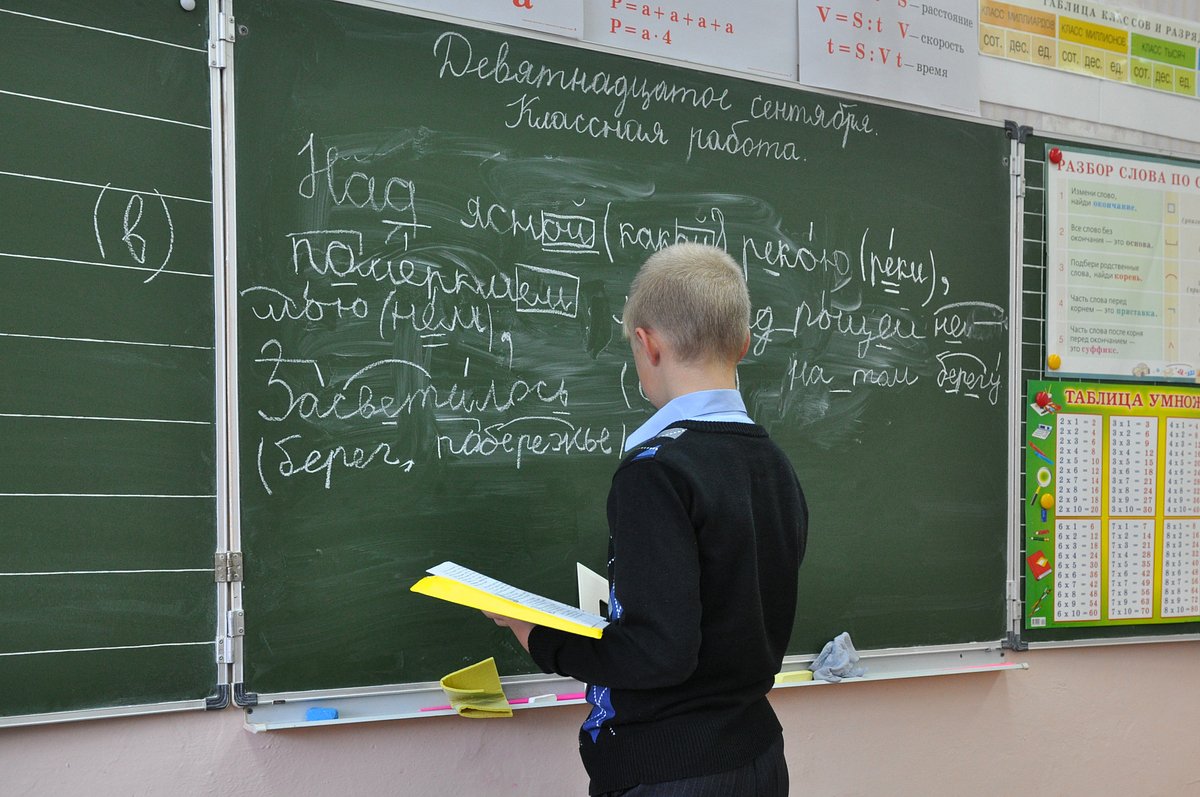 а
P=a+a+a+a
P=a·4
S—расстояние
V=S:t V—скорость
t=S:V t—время
ТАБЛИЦА КЛАССОВ И РАЗРЯ
КЛАСС МИЛЛИАРДОВ КЛАСС МИЛЛИОНОВ КЛАСС ТЫСЯЧ
СОТ. ДЕС. ЕД. СОТ. ДЕС. ЕД. СОТ. ДЕС. ЕД.
Девятнадцатое сентября.
Классная работа.
(в)
Над ясной (какой) рекою (реки),
померкшем
мью (нем), д рощей
Засветилось на том берегу
(берег, побережье
РАЗБОР СЛОВА ПО С
1 Измени слово,
найди окончание.
2 Все слово без
окончания — это основа.
3 Подбери родственные
слова, найди корень.
4 Часть слова перед
корнем — это приставка.
5 Часть слова после корня
перед окончанием —
это суффикс.
ТАБЛИЦА УМНОЖ
2 x 1 = 2 3 x 1 = 3
2 x 2 = 4 3 x 2 = 6
2 x 3 = 6 3 x 3 = 9
2 x 4 = 8 3 x 4 = 12
2 x 5 = 10 3 x 5 = 15
2 x 6 = 12 3 x 6 = 18
2 x 7 = 14 3 x 7 = 21
2 x 8 = 16 3 x 8 = 24
2 x 9 = 18 3 x 9 = 27
2 x 10 = 20 3 x 10 = 30
6 x 1 = 6 7 x 1 = 7
6 x 2 = 12 7 x 2 = 14
6 x 3 = 18 7 x 3 = 21
6 x 4 = 24 7 x 4 = 28
6 x 5 = 30 7 x 5 = 35
6 x 6 = 36 7 x 6 = 42
6 x 7 = 42 7 x 7 = 49
6 x 8 = 48 7 x 8 = 56
6 x 9 = 54 7 x 9 = 63
6 x 10 = 60 7 x 10 = 70